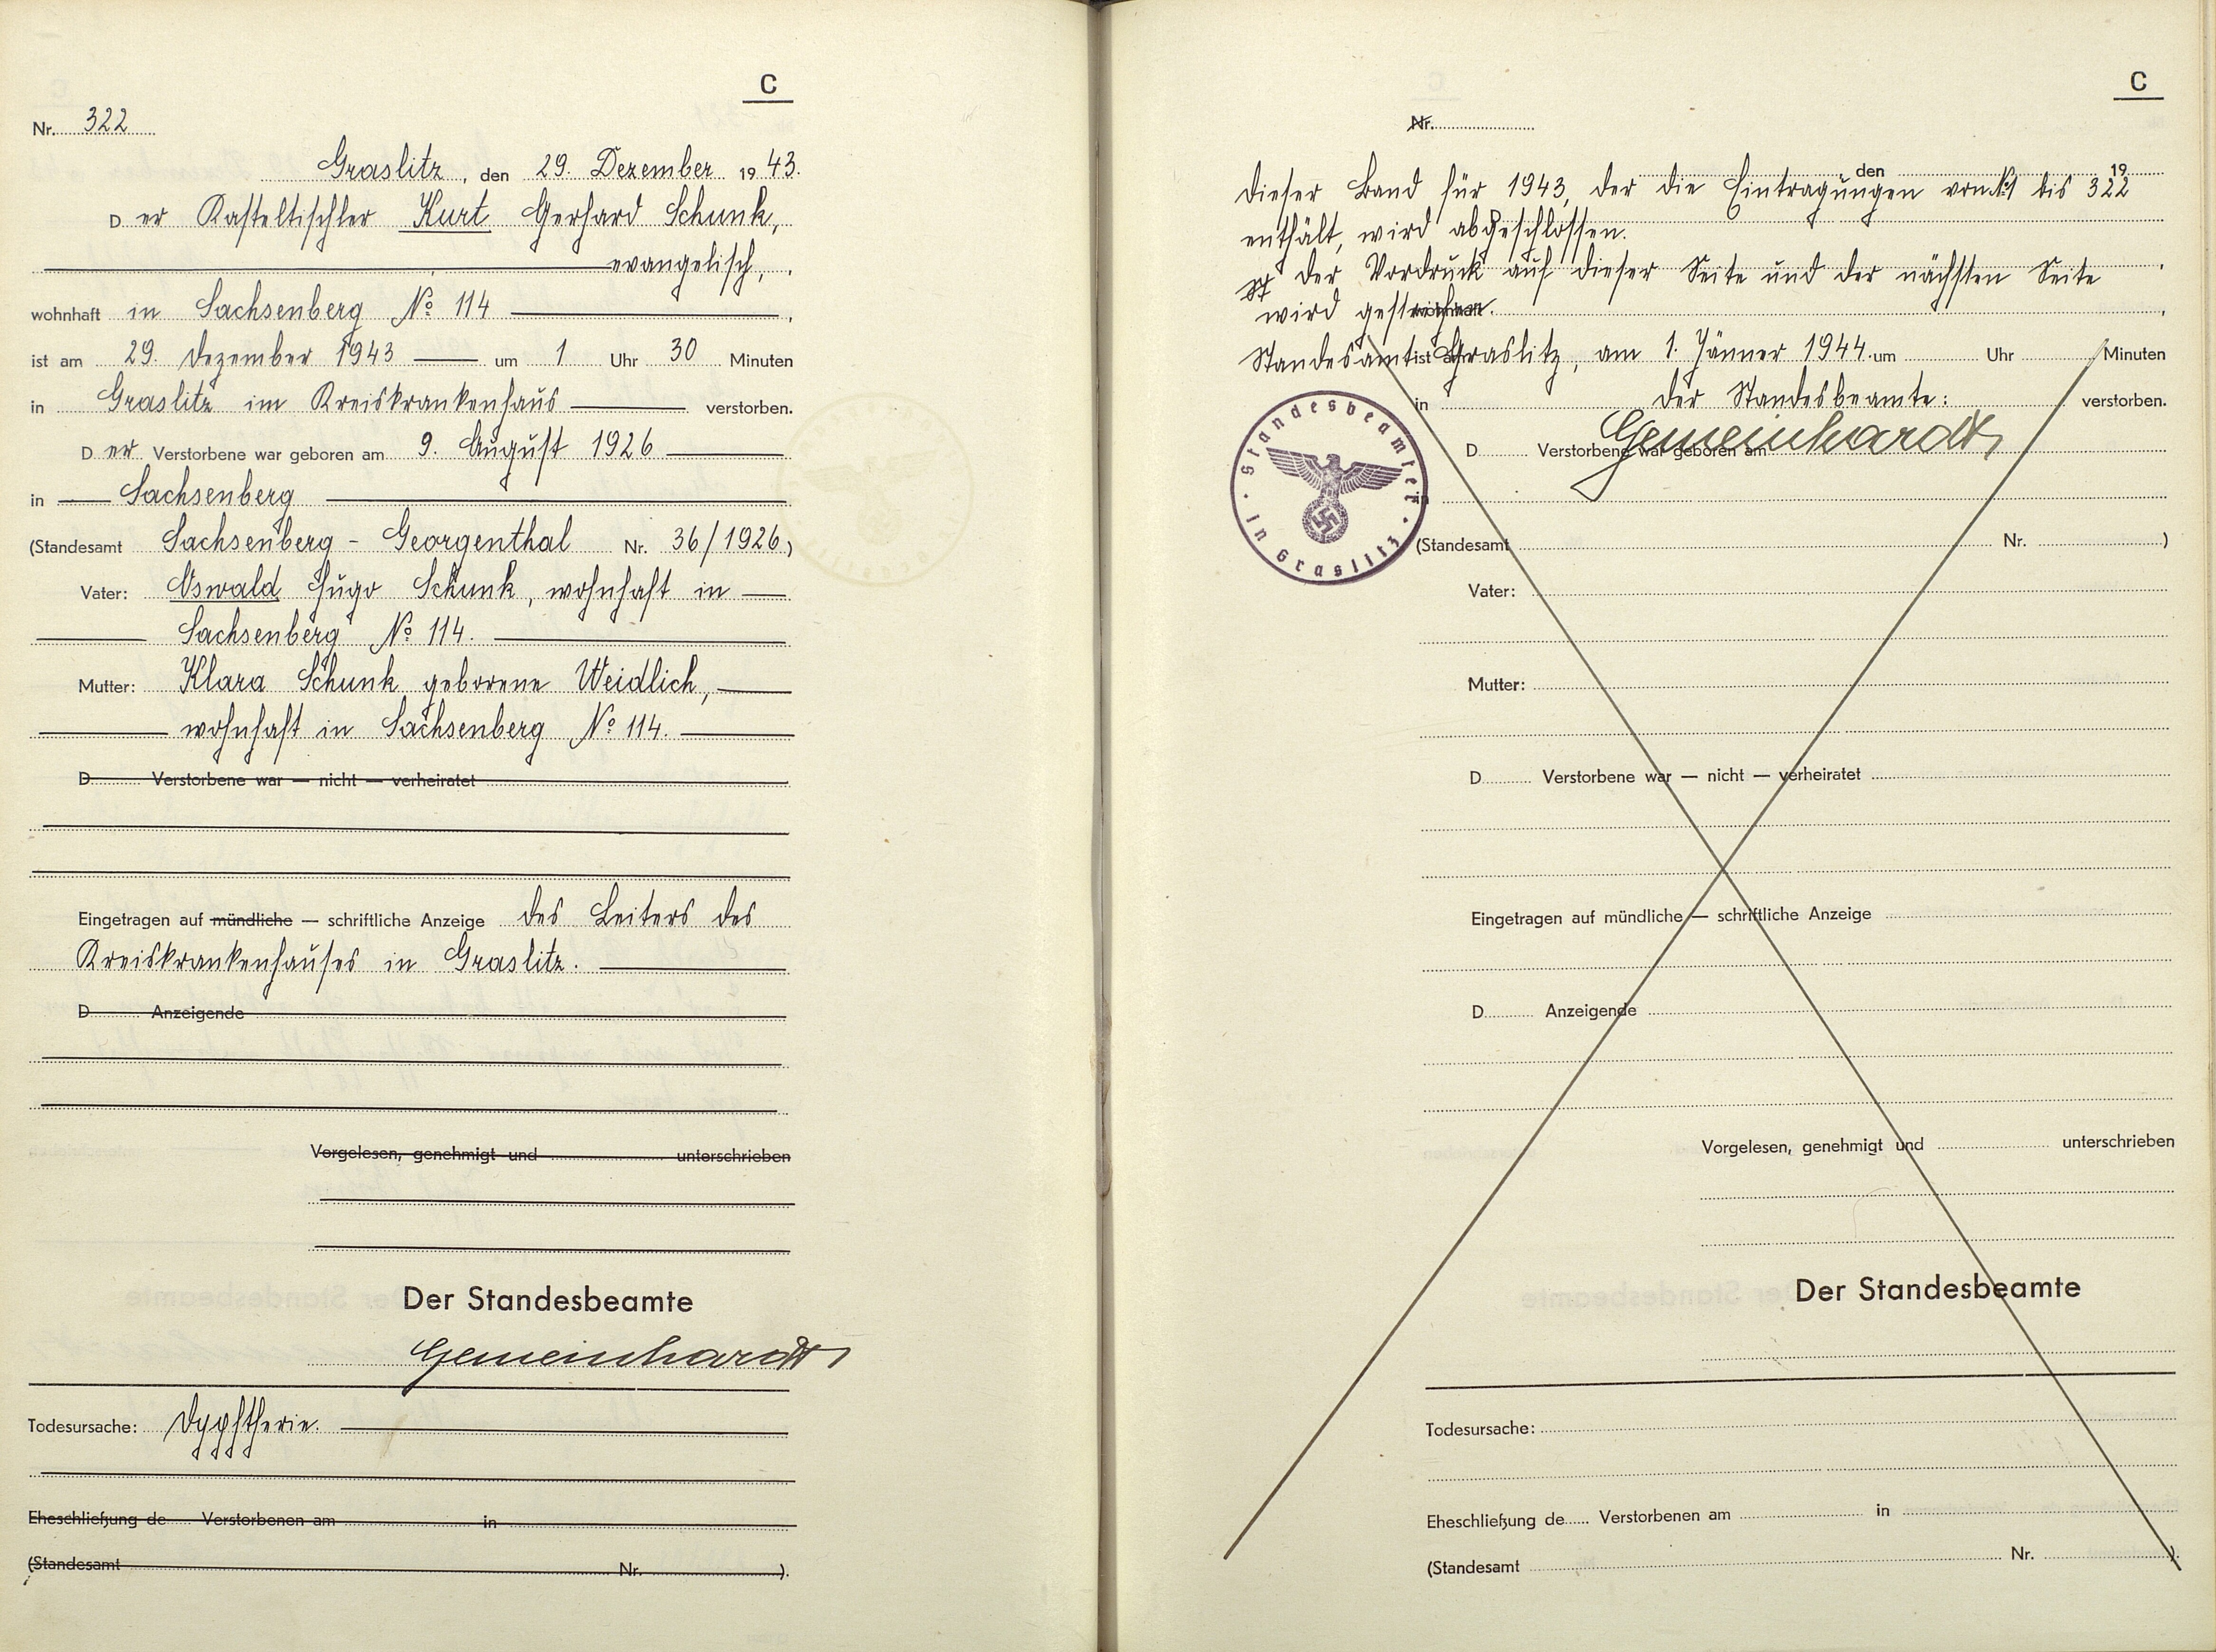 C
Nr. 322
Graslitz, den 29. Dezember 1943.
Der Kasteltischler Kurt Gerhard Schunk,
evangelisch,
wohnhaft in Sachsenberg No 114
ist am 29. Dezember 1943 um 1 Uhr 30 Minuten
in Graslitz im Kreiskrankenhaus verstorben.
Der Verstorbene war geboren am 9. August 1926
in Sachsenberg
(Standesamt Sachsenberg - Georgenthal Nr. 36/1926)
Vater: Oswald Hugo Schunk, wohnhaft in
Sachsenberg No 114.
Mutter: Klara Schunk geborene Weidlich,
wohnhaft in Sachsenberg No 114.
D Verstorbene war — nicht — verheiratet
Eingetragen auf mündliche — schriftliche Anzeige des Leiters des
Kreiskrankenhauses in Graslitz.
D Anzeigende
Vorgelesen, genehmigt und unterschrieben
Der Standesbeamte
Gemeinhardt
Todesursache: Dyphtherie.
Eheschließung de Verstorbenen am in
(Standesamt Nr. ).
C
Nr.
den 19
Dieser Band für 1943, der die Eintragungen von No 1 bis 322
enthält, wird abgeschlossen.
Der Vordruck auf dieser Seite und der nächsten Seite
wird gestrichen.
wohnhaft
Standesamt Graslitz, am 1. Jänner 1944.
ist am um Uhr Minuten
Der Standesbeamte:
in verstorben.
Gemeinhardt
D Verstorbene war geboren am
in
Standesbeamter in Graslitz
(Standesamt Nr. )
Vater:
Mutter:
D Verstorbene war — nicht — verheiratet
Eingetragen auf mündliche — schriftliche Anzeige
D Anzeigende
Vorgelesen, genehmigt und unterschrieben
Der Standesbeamte
Todesursache:
Eheschließung de Verstorbenen am in
(Standesamt Nr. ).